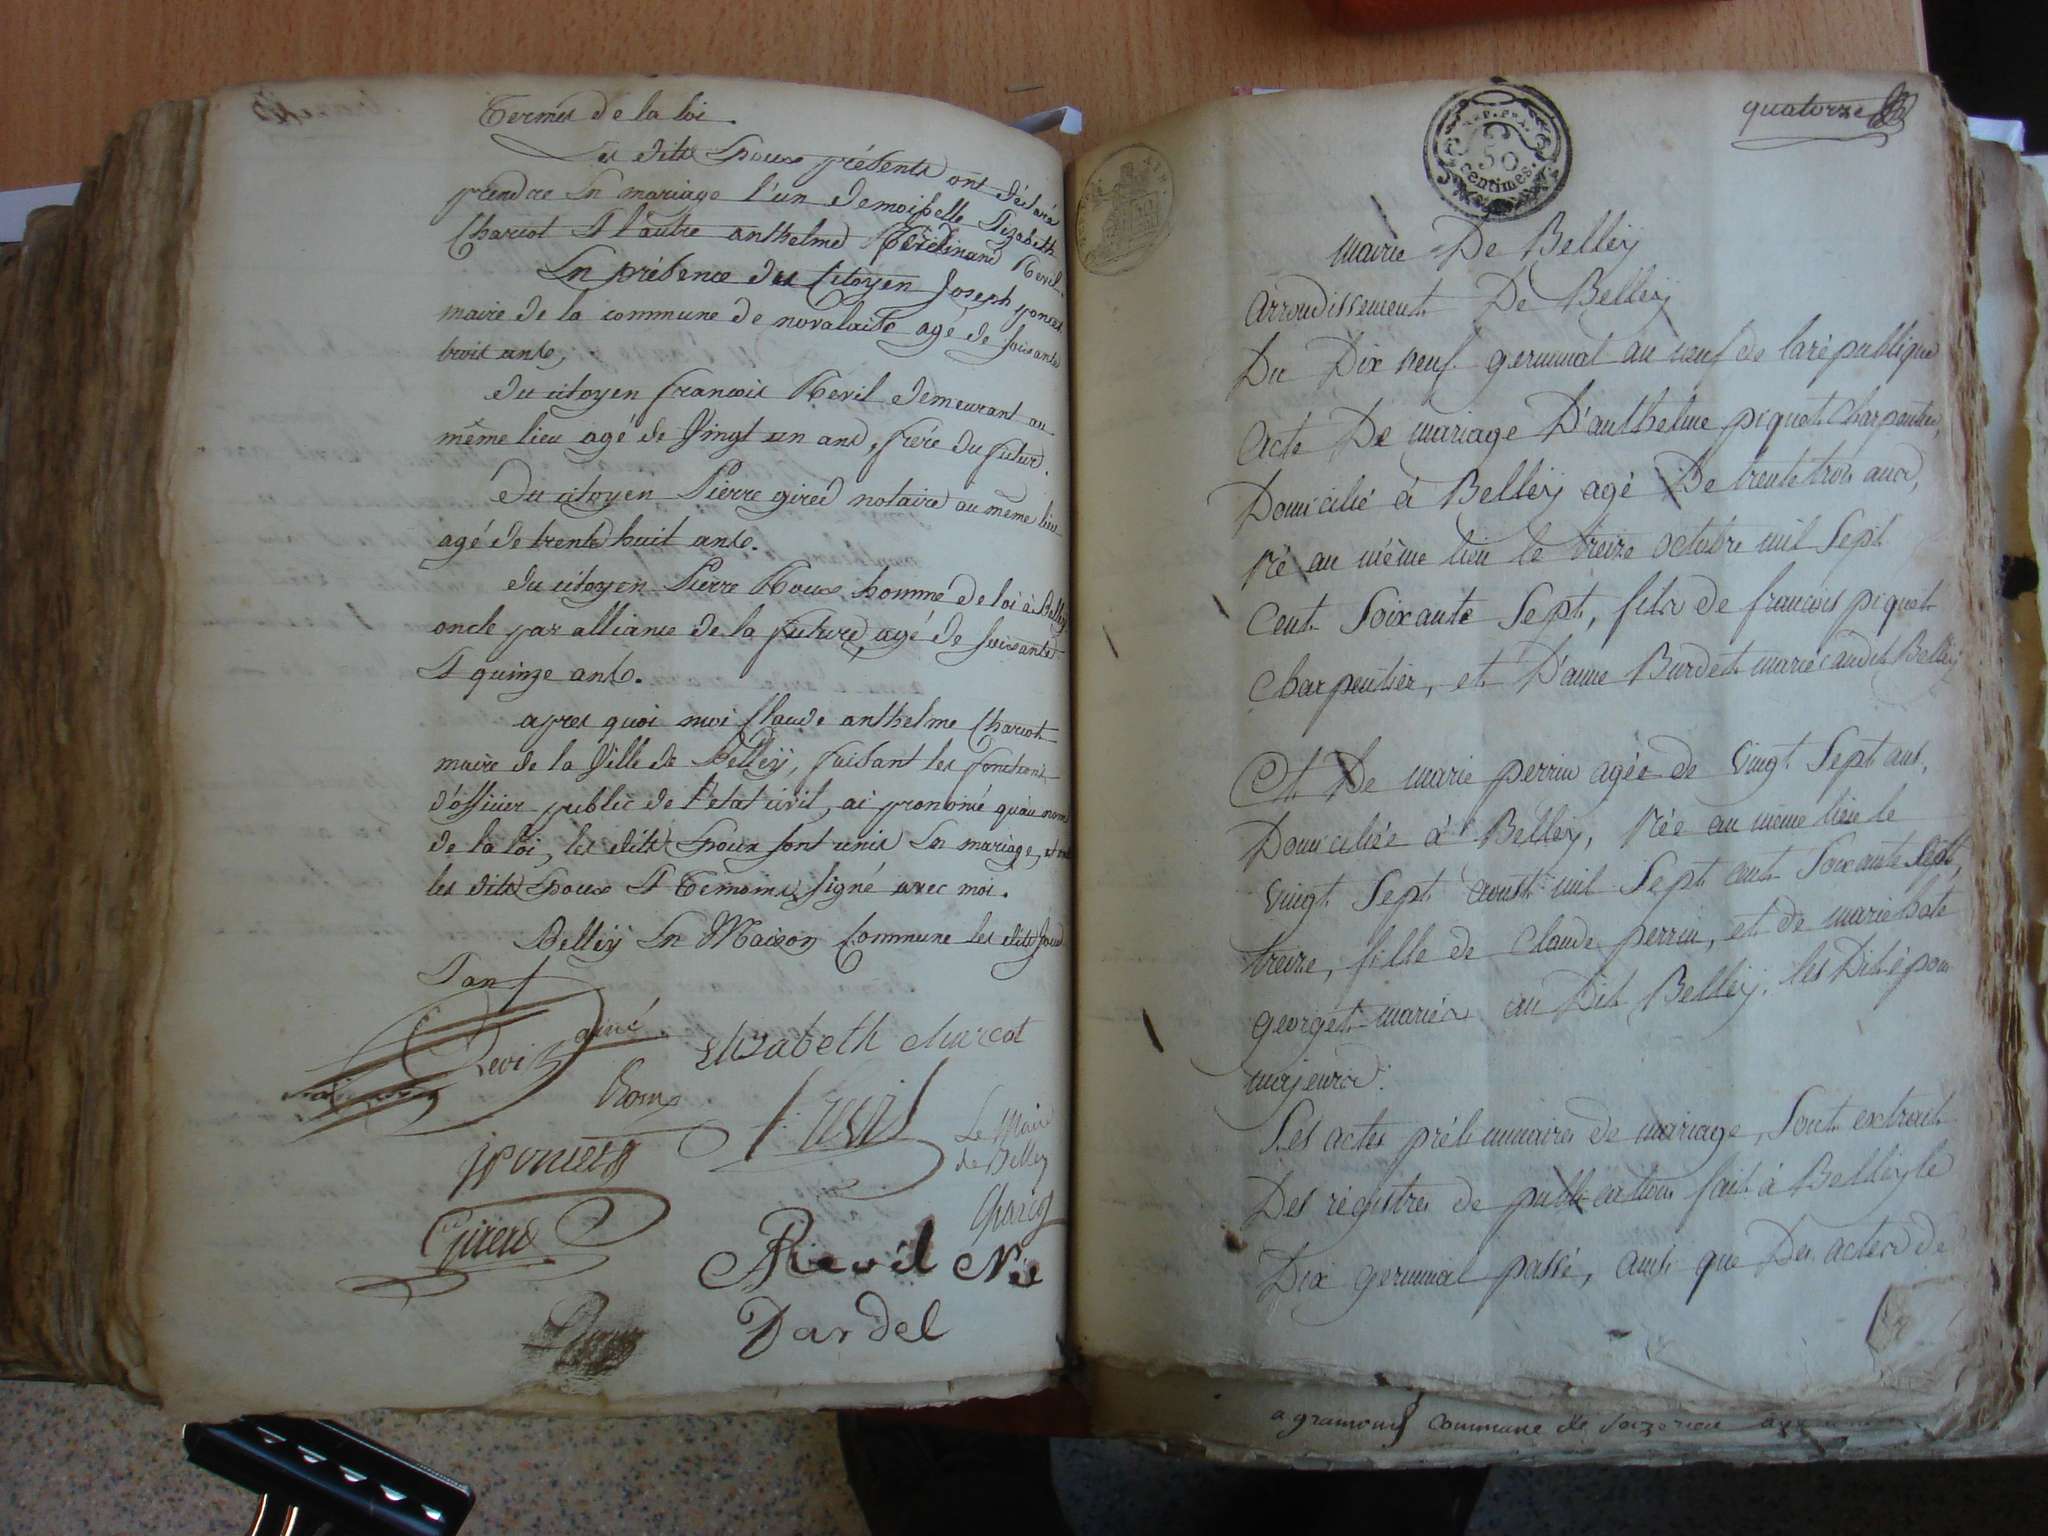 termes de la loi.
Les dits Epoux présents ont déclaré
prendre En mariage l'un demoiselle Elizabeth
Charcot Et l'autre anthelme ferdinand Revil.
En présence du Citoyen Joseph ponset
maire de la commune de novalaise agé de soixante
trois ans,
du citoyen françois Revil demeurant au
même lieu agé de Vingt un ans, frére du futur.
du citoyen Pierre gired notaire au même lieu
agé de trente huit ans.
du citoyen Pierre Roux homme de loi à Belley
oncle par alliance de la future, agé de soixante
Et quinze ans.
apres quoi moi Claude anthelme Charcot
maire de la Ville de Belleÿ, faisant les fonctions
d'officier public de l'etat civil, ai prononcé qu'au nom
de la loi, les dits Epoux sont unis En mariage, et ont
les dits Epoux Et temoins signé avec moi.
Belleÿ En Maison Commune les dits Jour
Et an
Revil ainé
Elizabeth charcot
Roux
f. revil
Le Maire
de Belley
jponcet
Gired
Revil Née
Dardel
quatorze
50
centimes.
mairie De Belleÿ
arrondissement De Belleÿ
Du Dix neuf germinal an neuf de la république
acte De mariage D'anthelme piquet charpentier,
Domicilié à Belleÿ agé De trente trois ans,
né au même lieu le treize octobre mil Sept
Cent Soixante Sept, fils de francois piquet
Charpentier, et D'anne Burdet mariés audit Belleÿ
Et De marie perrin agée de vingt Sept ans,
Domiciliée à Belleÿ, née au même lieu le
vingt Sept aoust mil Sept cent Soixante Sept,
treize, fille de Claude perrin, et de marie
georget mariés au Dit Belleÿ, les Dits époux
majeurs.
Les actes préliminaires de mariage, Sont extrait
Des régistres de publication fait à Belleÿ le
Dix germinal passé, ainsi que Des actes de
a gramont commune de